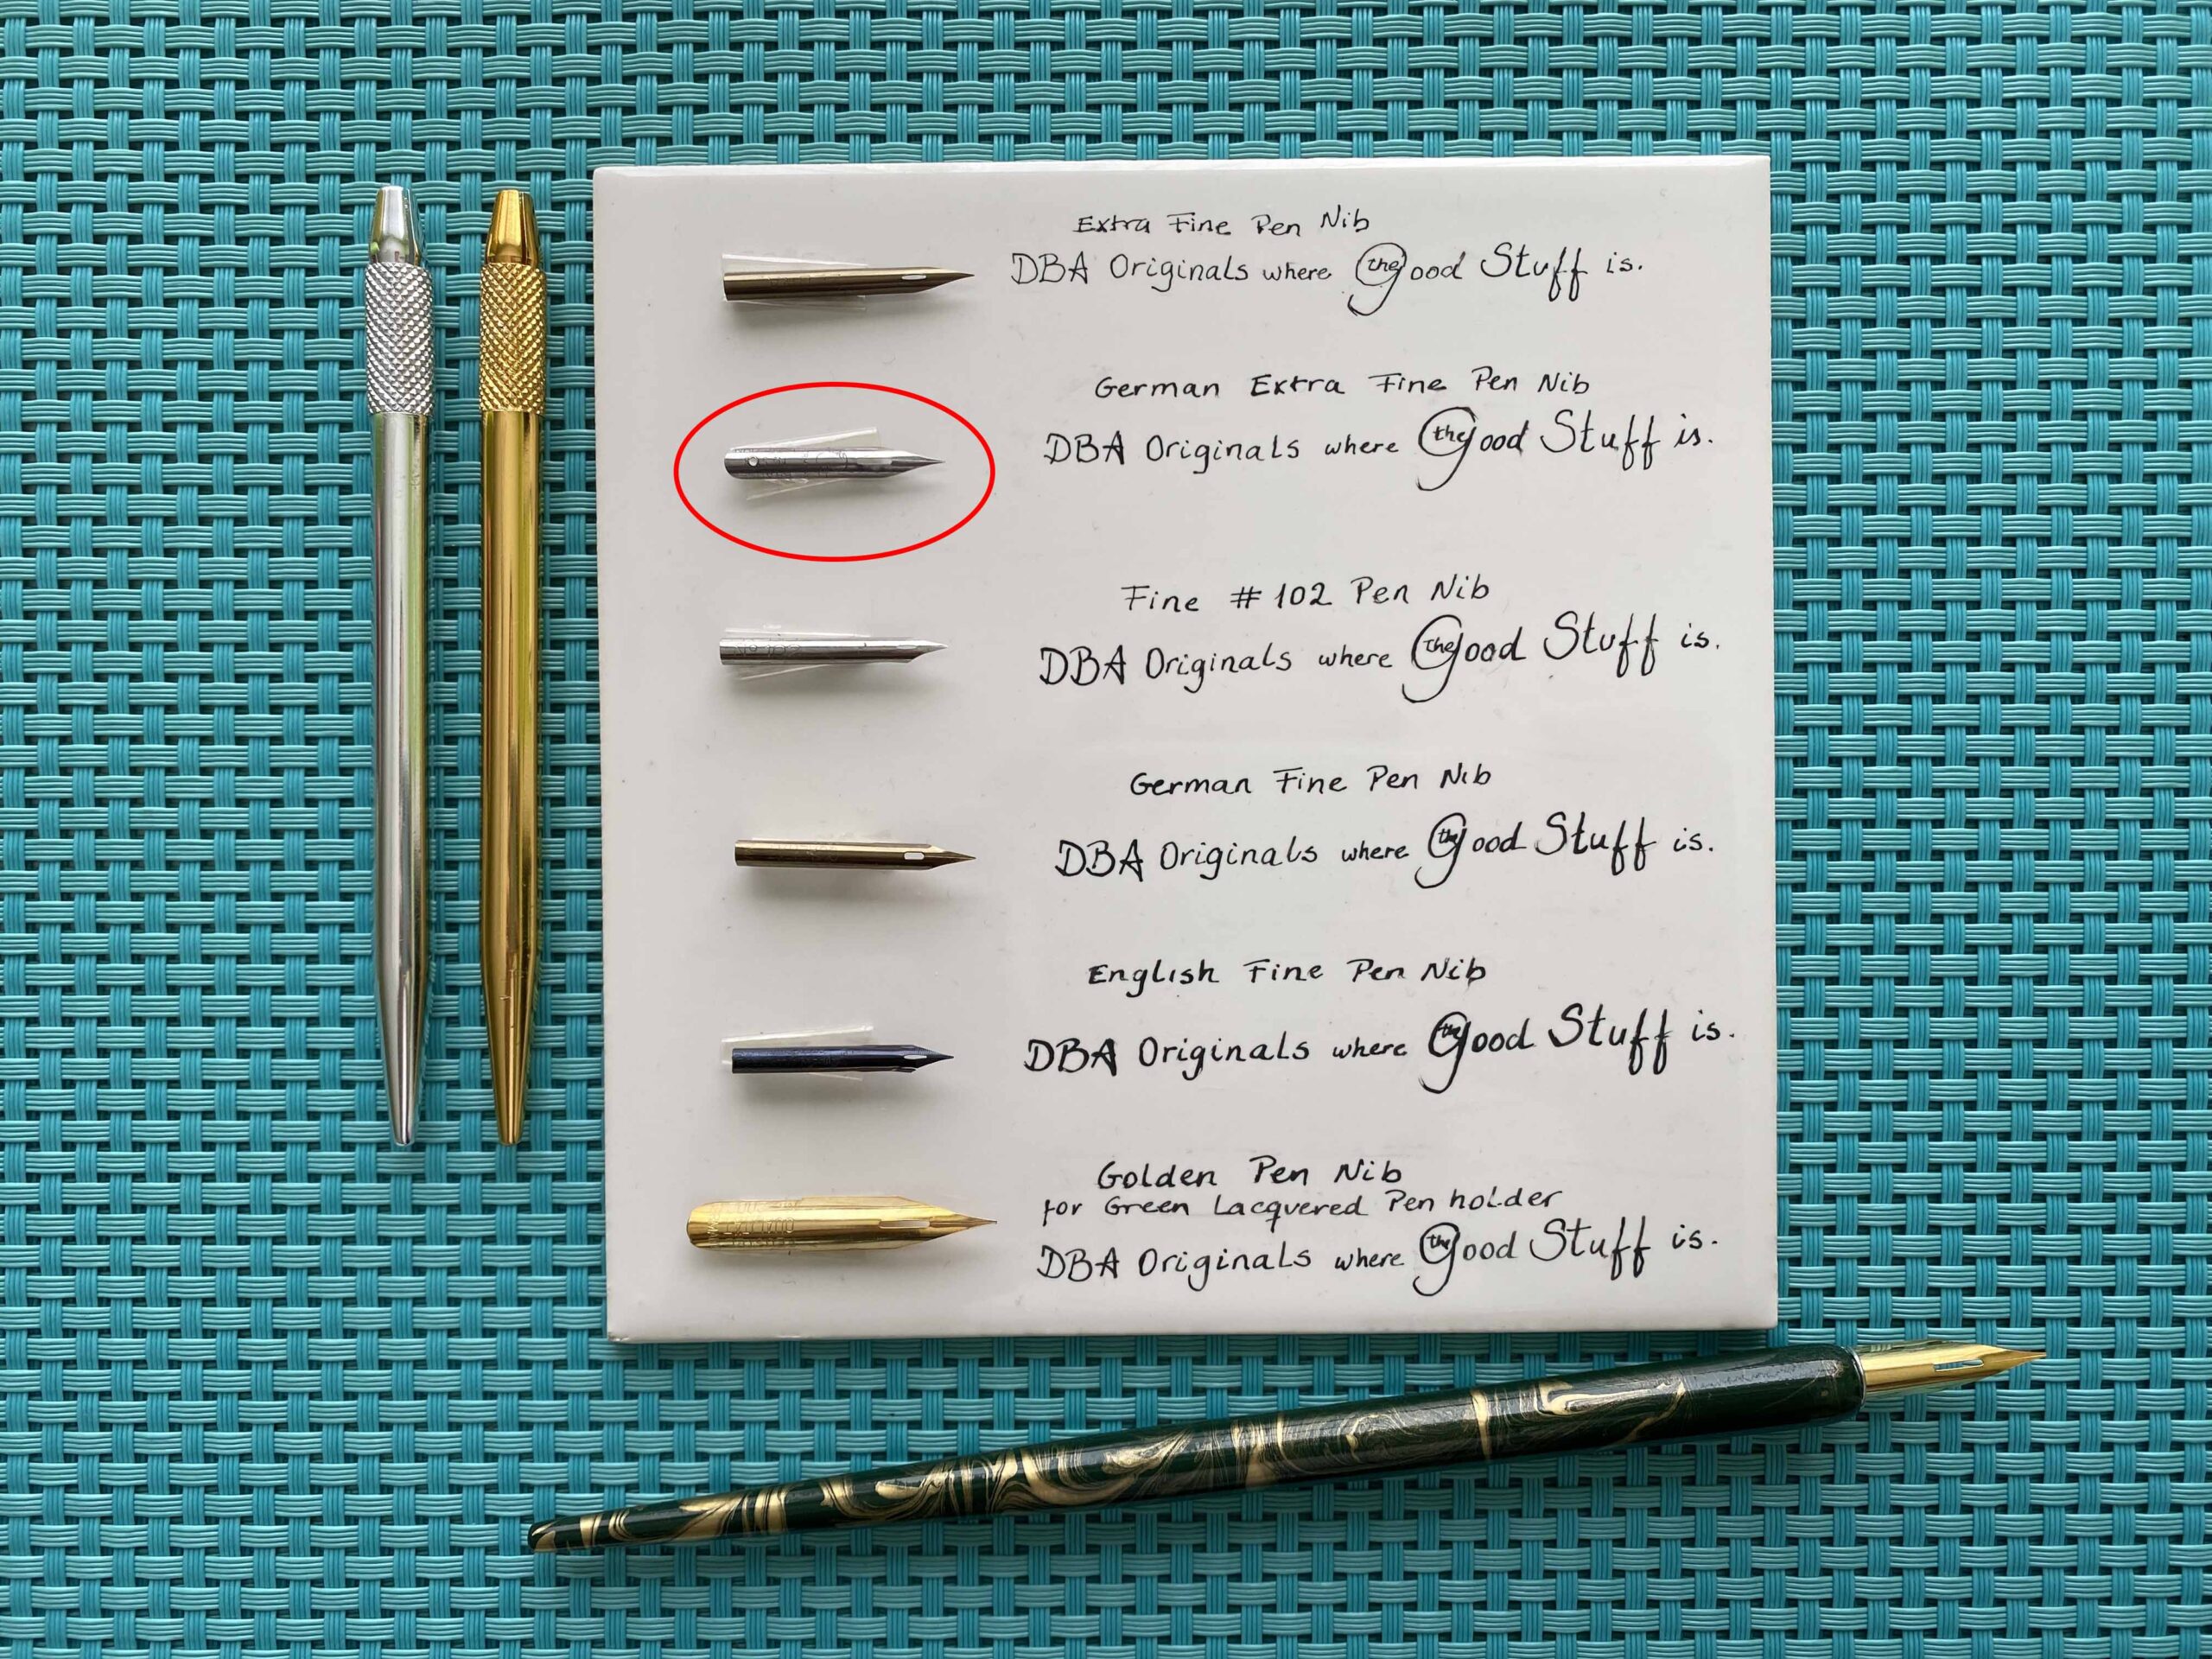 Extra Fine Pen Nib
DBA Originals where the Good Stuff is.
German Extra Fine Pen Nib
DBA Originals where the Good Stuff is.
Fine # 102 Pen Nib
DBA Originals where the Good Stuff is.
German Fine Pen Nib
DBA Originals where the Good Stuff is.
English Fine Pen Nib
DBA Originals where the Good Stuff is.
Golden Pen Nib
for Green Lacquered Pen holder
DBA Originals where the Good Stuff is.